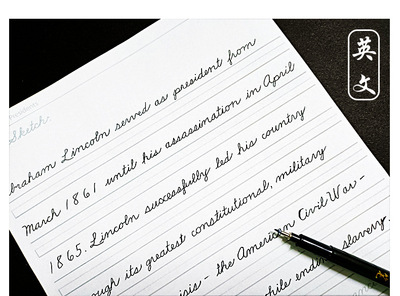 英文
Sketch.
braham Lincoln served as president from
March 1861 until his assassination in April
1865. Lincoln successfully led his country
ough its greatest constitutional, military
isis - the American Civil War -
while ending slavery,